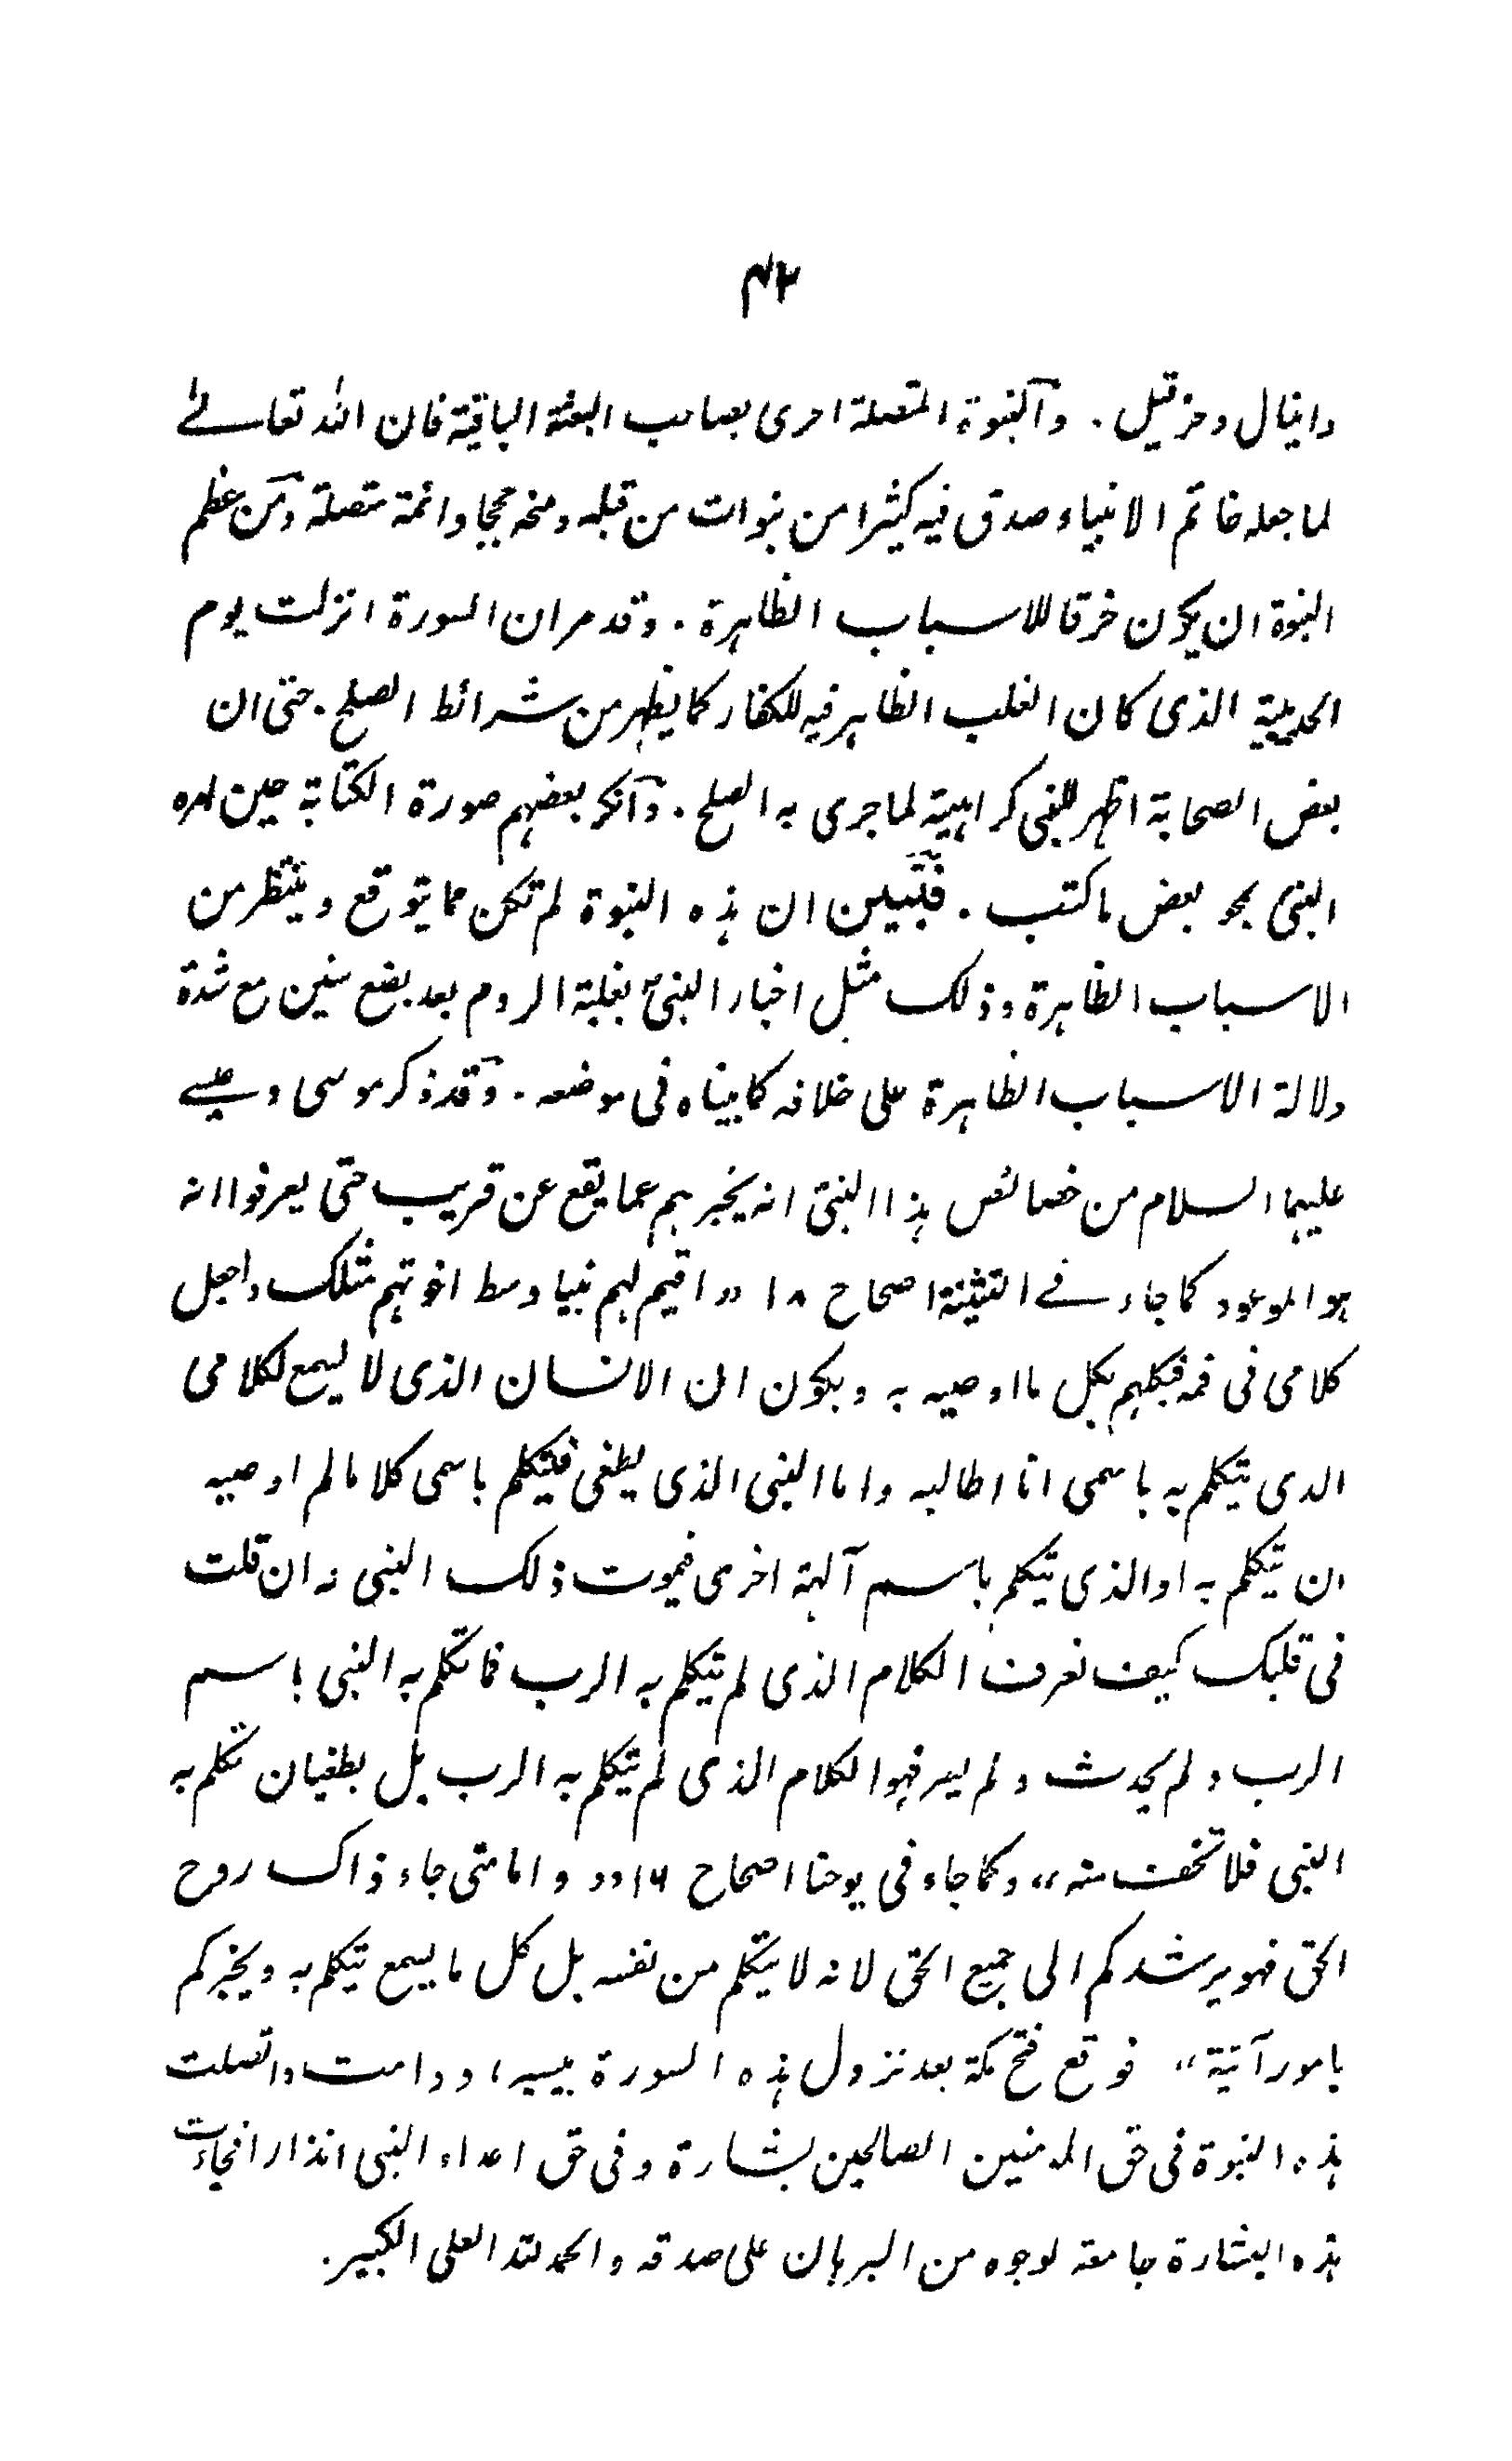 ٤٢
دانيال وحزقيل. وآلنبوة المتصلة احرى بصاحب البعثة الباقية فان الله تعالى
لما جعله خاتم الانبياء صدق فيه كثيرا من نبوات من قبله ومنحه حججا دائمة متصلة وآمن عظم
النبوة ان يكون خرقا للاسباب الظاهرة. وقد مر ان السورة انزلت يوم
الحديبية الذى كان الغلب الظاهر فيه للكفار كما يظهر من شرائط الصلح. حتى ان
بعض الصحابة اظهر للنبى كراهية لما جرى به الصلح. وآنكر بعضهم صورة الكتابة حين امره
النبى بمحو بعض ما كتب. فتبين ان هذه النبوة لم تكن مما يتوقع وينتظر من
الاسباب الظاهرة وذلك مثل اخبار النبىؐ بغلبة الروم بعد بضع سنين مع شدة
دلالة الاسباب الظاهرة على خلافه كما بيناه فى موضعه. وآقد ذكر موسى وعيسى
عليهما السلام من خصائص هذا النبى انه يخبرهم عما يقع عن قريب حتى يعرفوا انه
هو الموعود كما جاء فى التثنية اصحاح ١٨ "اقيم لهم نبيا وسط اخوتهم مثلك واجعل
كلامى فى فمه فيكلمهم بكل ما اوصيه به ويكون ان الانسان الذى لا يسمع لكلامى
الدى يتكلم به باسمى انا اطالبه واما النبى الذى يطغى فيتكلم باسمى كلاما لم اوصيه
ان يتكلم به او الذى يتكلم باسم آلهة اخرى فيموت ذلك النبى وان قلت
فى قلبك كيف نعرف الكلام الذى لم يتكلم به الرب فما تكلم به النبى باسم
الرب ولم يحدث ولم يصر فهو الكلام الذى لم يتكلم به الرب بل بطغيان تكلم به
النبى فلا تخف منه" وكما جاء فى يوحنا اصحاح ١٦ "واما متى جاء ذاك روح
الحق فهو يرشدكم الى جميع الحق لانه لا يتكلم من نفسه بل كل ما يسمع يتكلم به ويخبركم
بامور آتية" فوقع فتح مكة بعد نزول هذه السورة بيسير، ودامت واتصلت
هذه النبوة فى حق المومنين الصالحين بشارة وفى حق اعداء النبى انذارا فجاءت
هذه البشارة جامعة لوجوه من البرهان على صدقه والحمد لله العلى الكبير.